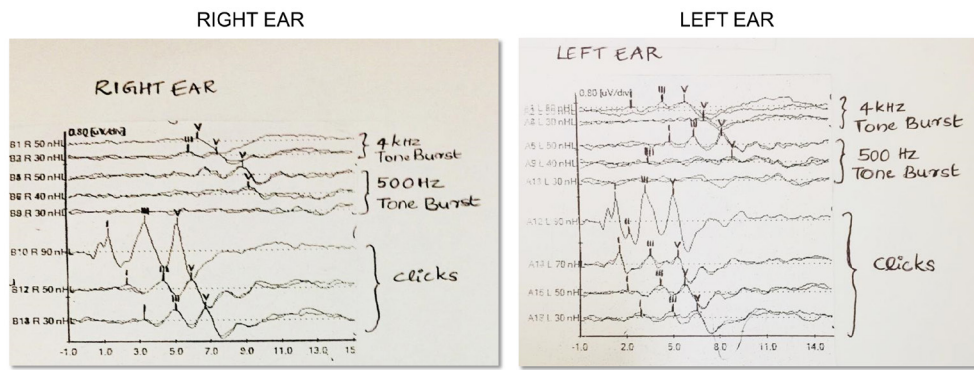 RIGHT EAR
LEFT EAR
RIGHT EAR
0.80 [uV/div]
B1 R 50 nHL
B3 R 30 nHL
R 50 nHL
R 40 nHL
R 30 nHL
B10 R 90 nHL
B12 R 50 nHL
R 30 nHL
III
V
V
V
V
I
III
V
I
III
V
III
V
4kHz
Tone Burst
500Hz
Tone Burst
clicks
-1.0 1.0 3.0 5.0 7.0 9.0 11.0 13.0 15
LEFT EAR
0.80 [uV/div]
L 30 nHL
L 40 nHL
L 30 nHL
L 70 nHL
L 50 nHL
L 30 nHL
III
V
V
I
III
V
III
V
III
V
I
III
V
I
III
V
I
III
V
4kHz
Tone Burst
500 Hz
Tone Burst
clicks
-1.0 2.0 5.0 8.0 11.0 14.0